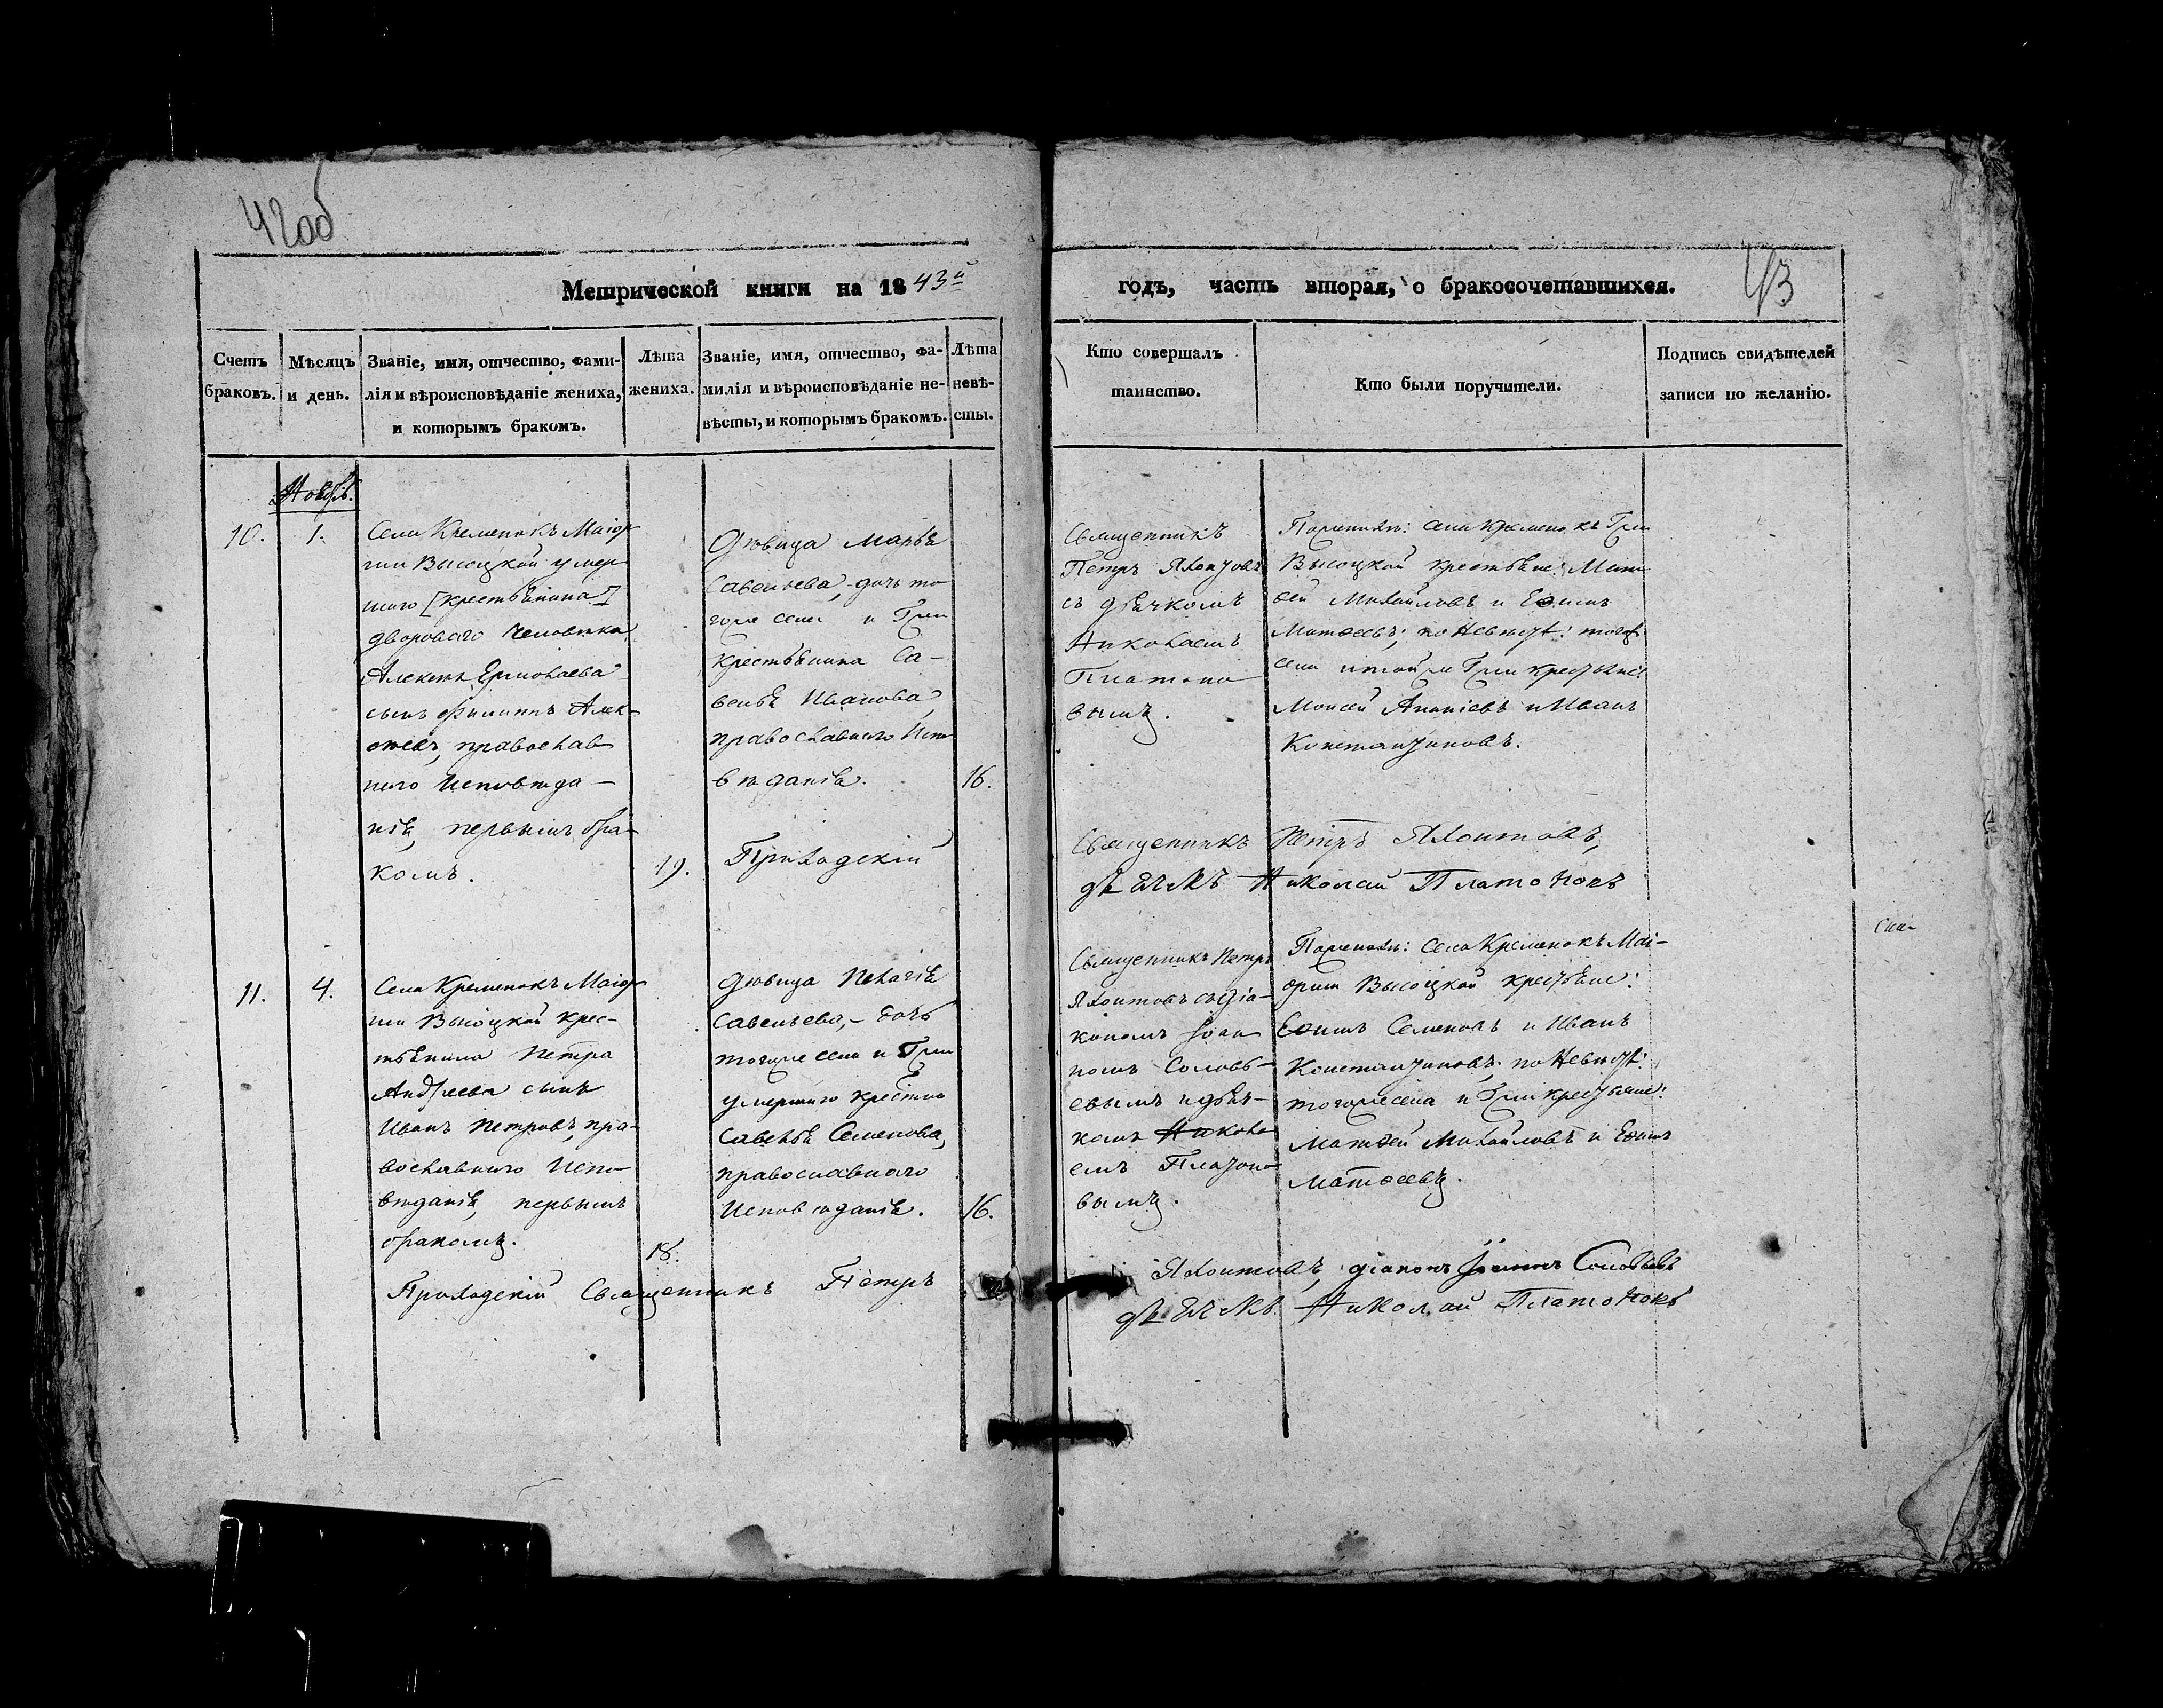 42об
43
Метрической книги на 1843й
годъ, часть вторая, о бракосочетавшихся.
Счетъ
браковъ.
Мѣсяцъ
и день.
Званіе, имя, отчество, фами-
лія и вѣроисповѣданіе жениха,
и которымъ бракомъ.
Лѣта
жениха.
Званіе, имя, отчество, фа-
милія и вѣроисповѣданіе не-
вѣсты, и которымъ бракомъ.
Лѣта
невѣ-
сты.
Кто совершалъ
таинство.
Кто были поручители.
Подпись свидѣтелей
записи по желанію.
Ноябрь.
10.
1.
Села Кременокъ Маіор
ши Высоцкой умер
шаго [крестьянина]
двороваго человѣка
Алексѣя Ермолаева
сынъ Филиппъ Алек-
сѣевъ, православ
наго Исповѣда-
нія, первымъ бра-
комъ.
19.
Дѣвица Марья
Савельева, дочь то
гоже села и Гжи
крестьянина Са-
велья Иванова,
православнаго Испо
вѣданія.
16.
Священникъ
Петръ Яхонтовъ
съ дьячкомъ
Николаемъ
Платоно
вымъ.
По женихѣ: села Кременокъ Гжи
Высоцкой крестьяне: Мат
ѳей Михайловъ и Ефимъ
Матѳеевъ; по Невѣстѣ: тогож
села и тойже Гжи крестьяне:
Моисей Ананіевъ и Иванъ
Константиновъ.
Приходскій
Священникъ Петръ Яхонтовъ,
дьячкъ Николай Платоновъ
11.
4.
Села Кременокъ Маіор
ши Высоцкой крес-
тьянина Петра
Андреева сынъ
Иванъ Петровъ, пра-
вославнаго Испо-
вѣданія, первымъ
бракомъ.
18.
Дѣвица Пелагія
Савельева, - дочь
тогоже села и Гжи
умершаго крестьна
Савелья Семенова,
православнаго
Исповѣданія.
16.
Священникъ Петръ
Яхонтовъ съ діа-
кономъ Іоан
номъ Соловь-
евымъ и дьяч-
комъ Никола
емъ Платоно
вымъ.
По женихѣ: Села Кременокъ Маі-
орши Высоцкой крестьяне:
Ефимъ Семеновъ и Иванъ
Константиновъ; по Невѣстѣ:
тогоже села и Гжи крестьяне:
Матѳей Михайловъ и Ефимъ
Матѳеевъ.
Приходскій Священникъ Петръ
Яхонтовъ, діаконъ Іоаннъ Соловьевъ
дьячкъ Николай Платоновъ